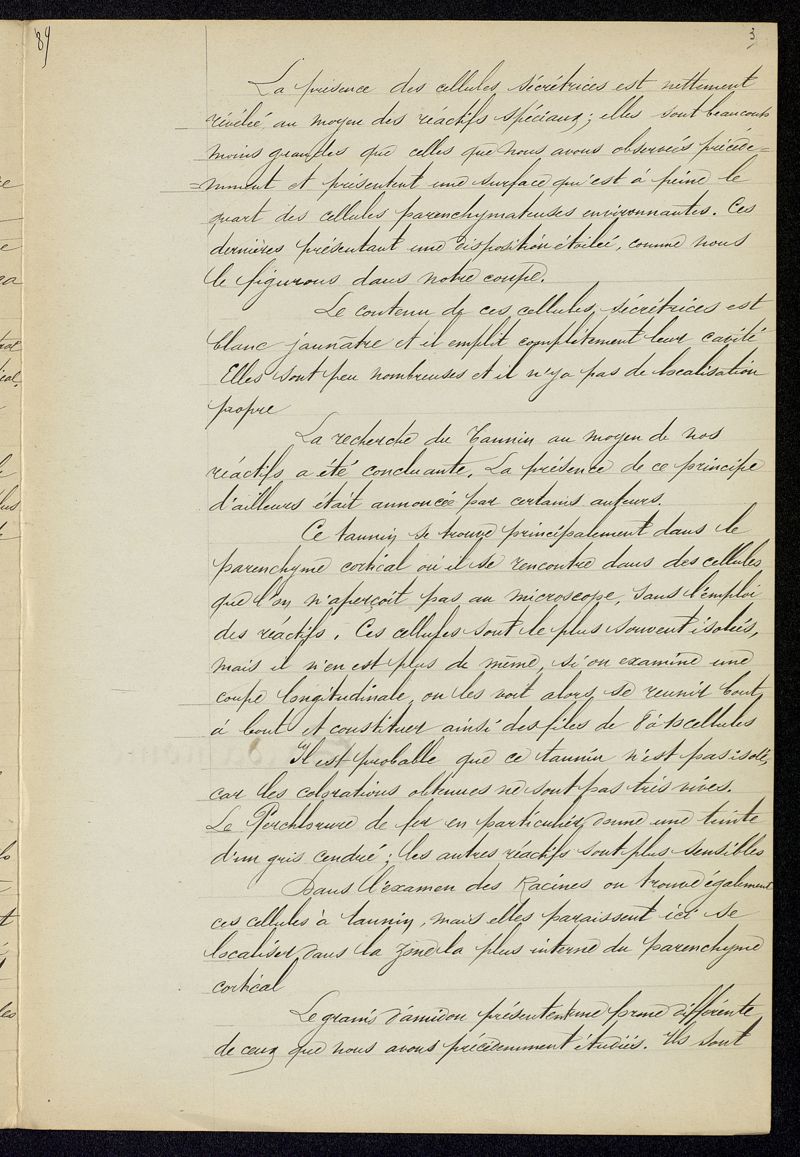 89
3
La présence des cellules sécrétrices est nettement
révéleé au moyen des réactifs spéciaux; elles sont beaucoup
moins grandes que celles que nous avons observeés précéde=
=mment et présentent une surface qu'est à peine le
quart des cellules parenchymateuses environnantes. Ces
dernières présentant une disposition étoileé, comme nous
le figurons dans notre coupe.
Le contenu de ces cellules sécrétrices est
blanc jaunâtre et il emplit complètement leur cavité
Elles sont peu nombreuses et il n'y a pas de localisation
propre
La recherche du Tannin au moyen de nos
réactifs a été concluante. La présence de ce principe
d'ailleurs était annoncée par certains auteurs.
Ce tannin se trouve principalement dans le
parenchyme cortical où il se rencontre dans des cellules
que l'on n'aperçoit pas au microscope, sans l'emploi
des réactifs. Ces cellules sont le plus souvent isoleés,
mais il n'en est plus de même, si on examine une
coupe longitudinale, on les voit alors se reunir bout
à bout et constituer ainsi des files de 8 à cellules
Il est probable que ce tannin n'est pas isolé,
car les colorations obtenues ne sont pas très vives.
Le Perchlorure de fer en particulier donne une teinte
d'un gris cendré; les autres réactifs sont plus sensibles
Dans l'examen des Racines on trouve également
ces cellules à tannin, mais elles paraissent ici se
localiser dans la zone la plus interne du parenchyme
cortical
Le grains d'amidon présentent une forme différente
de ceux que nous avons précédemment étudiés. Ils sont